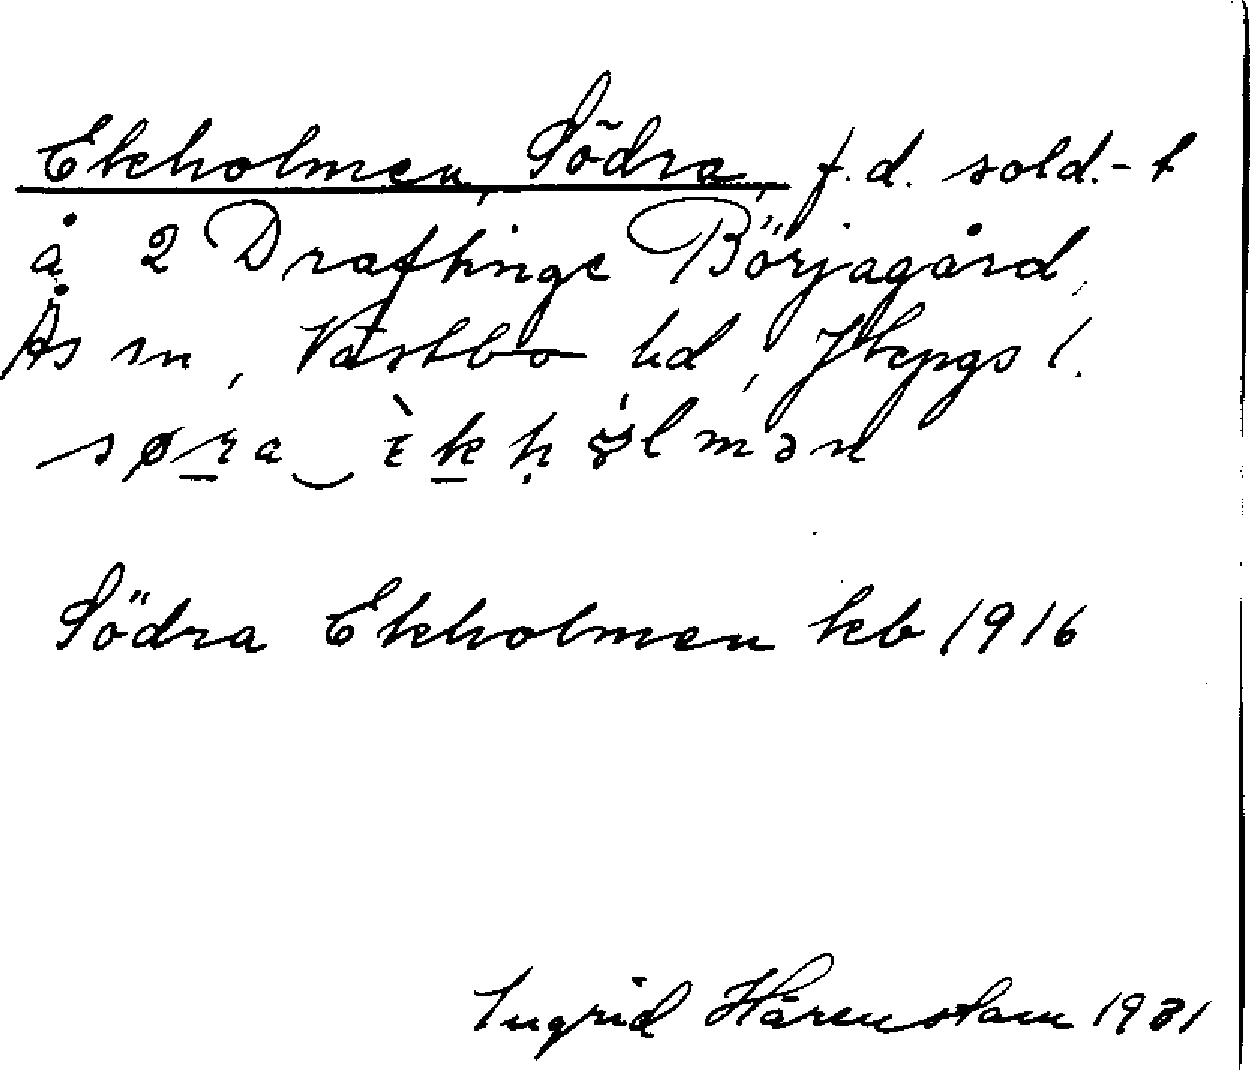 Ekholmen, Södra, f.d. sold.-t
å 2 Draftinge Börjagård,
Ås sn, Västbo hd, Jkpgs l.
Södra Ekholmen kb 1916
Ingrid Härenstam 1981